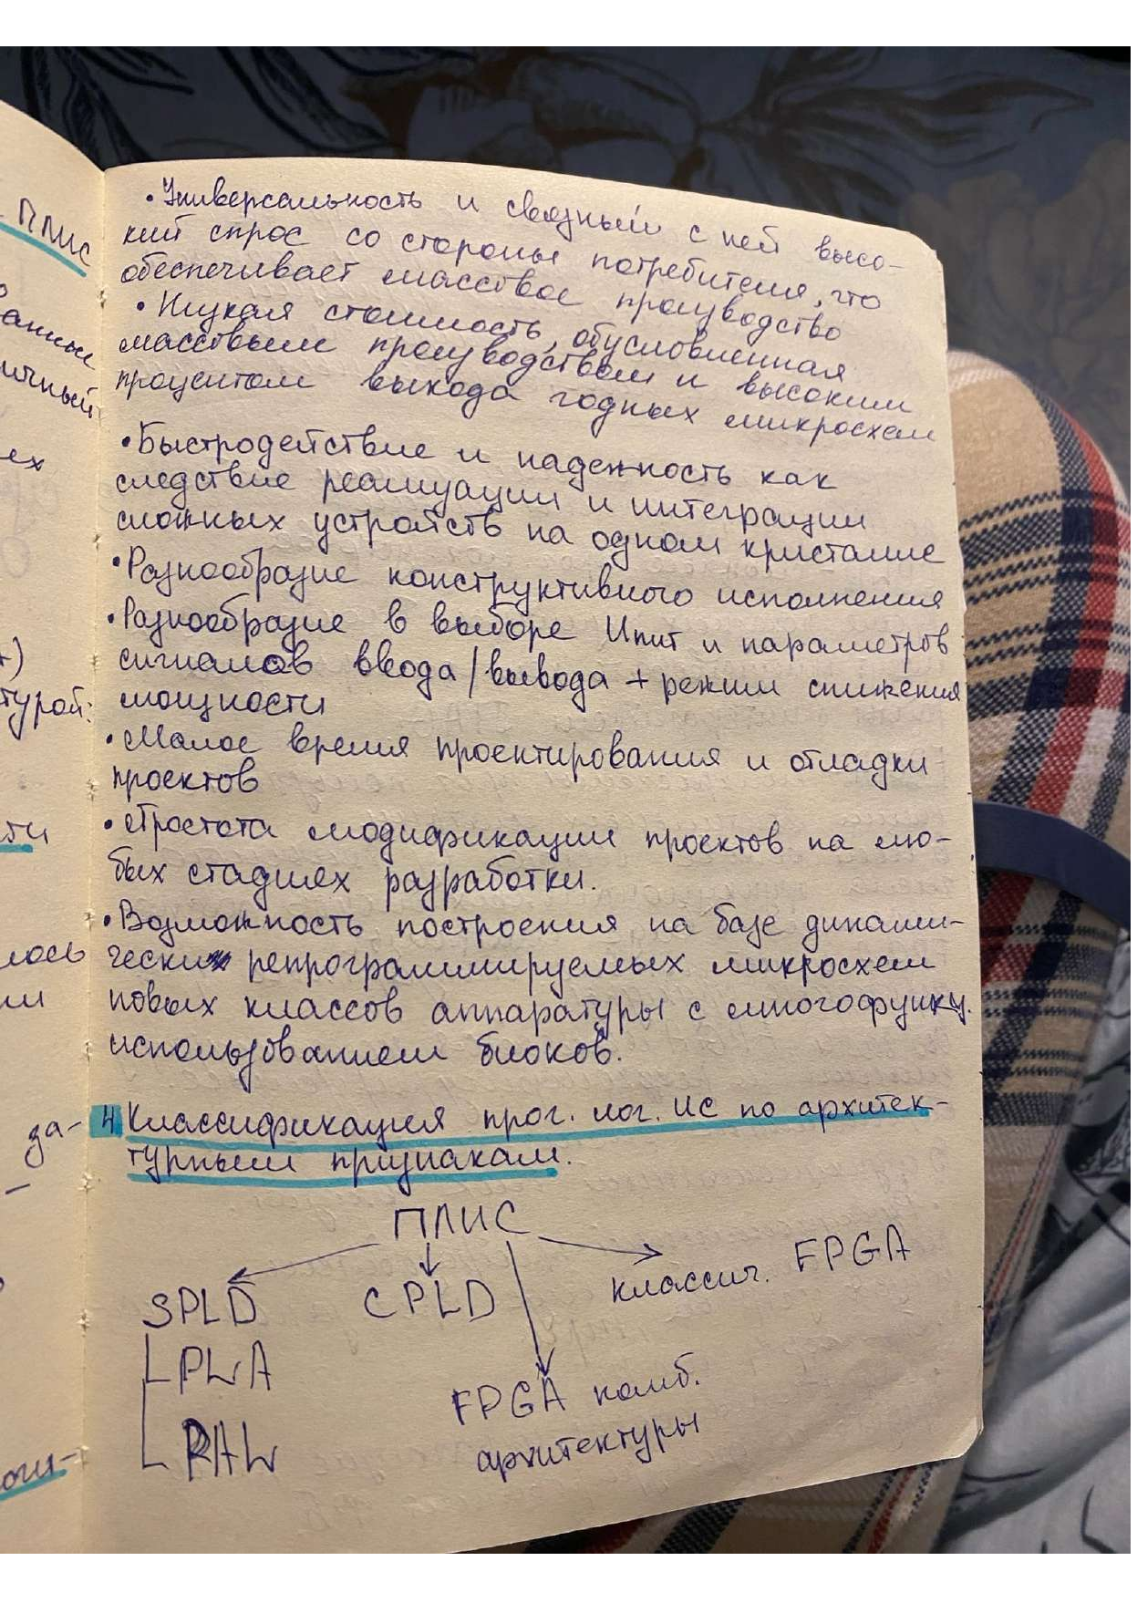 • Универсальность и связный с ней высо-
кий спрос со стороны потребителя, что
обеспечивает массовое производство
• Низкая стоимость, обусловленная
массовым производством и высоким
процентом выхода годных микросхем
• Быстродействие и надежность как
следствие реализации и интеграции
сложных устройств на одном кристалле
• Разнообразие конструктивного исполнения
• Разнообразие в выборе Uпит и параметров
сигналов ввода/вывода + режим снижения
мощности
• Малое время проектирования и отладки
проектов
• Простота модификации проектов на лю-
бых стадиях разработки.
• Возможность построения на базе динами-
чески репрограммируемых микросхем
новых классов аппаратуры с многофункц.
использованием блоков.
4 Классификация прог. лог. ИС по архитек-
турным признакам.
ПЛИС
SPLD CPLD классич. FPGA
PLA FPGA комб.
PAL архитектуры
ПЛИС
анные
ичный
ех
турой:
сти
лось
ми
да-